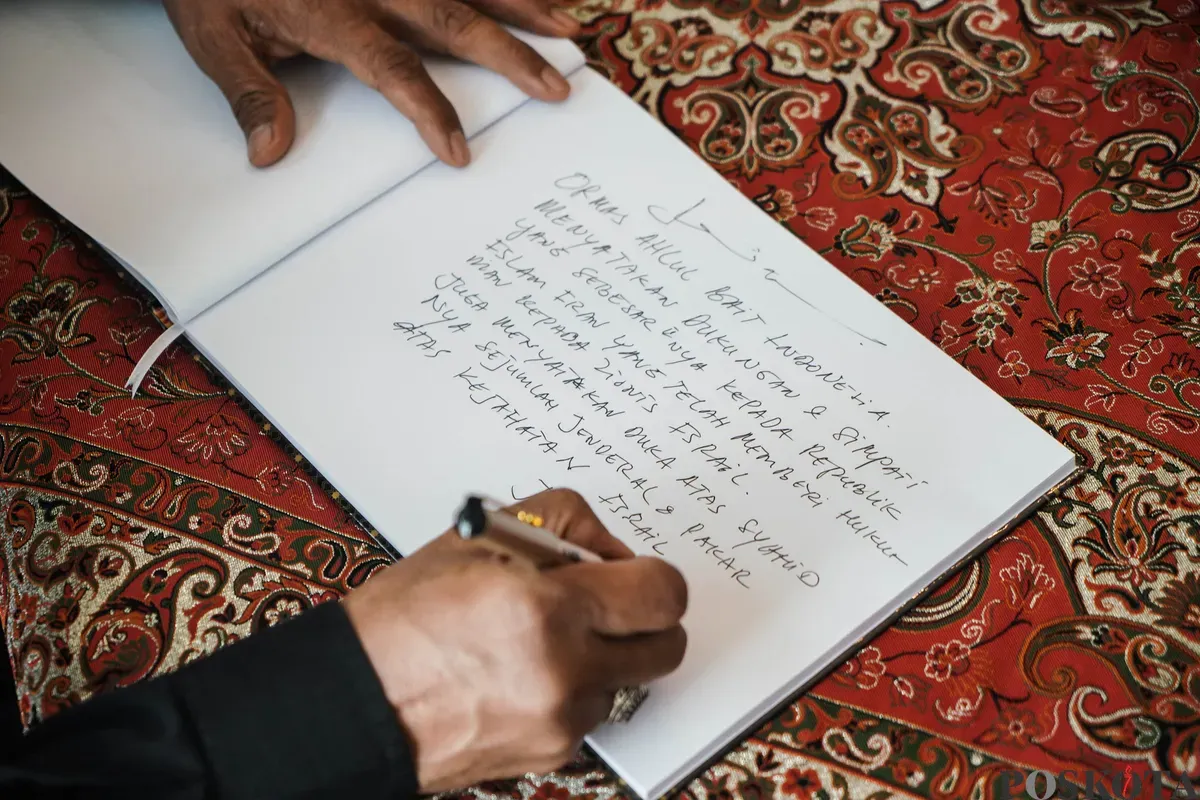 ORMAS AHLUL BAIT INDONESIA.
MENYATAKAN DUKUNGAN & SIMPATI
YANG SEBESAR2NYA KEPADA REPUBLIK
ISLAM IRAN YANG TELAH MEMBERI HUKU
MAN KEPADA ZIONIS ISRAIL.
JUGA MENYATAKAN DUKA ATAS SYAHID
NYA SEJUMLAH JENDERAL & PAKAR
ATAS KEJAHATAN ISRAIL
POSKOTA